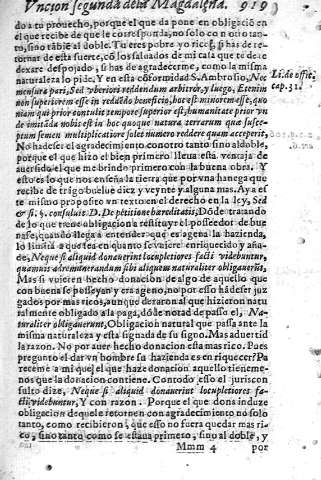 Vncion segunda de la Magdalena. 919
do a tu prouecho, porque el que da pone en obligació en
el que recibe de que le corresponda, no solo con otro tanto,
sino tāble al doble. Tu eres pobre yo rico, si has de retornar
de esta suerte, có los salados de mi casa que te de
dexare despojado, si has de agradecerme, como la misma
naturaleza lo pide. Y en esta cóformidad S. Ambrosio, Nec
mensura pari, Sed vberiori reddendum arbitror, y luego, Etenim
non superiorem esse in reddēdo beneficio, hoc est minorem esse, quo
niam qui prior contulit tempore superior est, humanitate prior vn
de imitāda nobis est in hoc quoque natura terrarum quæ suscep
tum semen multiplicatiore solet numero reddere quam acceperit,
No ha de ser el agradecimiento có otro tanto sino al doble,
porque el que hizo el bien primero lleua esta ventaja de
auer sido el que me brindo primero con la buena obra. Y
esto es lo que nos enseña la tierra que por vna hanega que
recibe de trigo buelue diez y veynte y alguna mas. Aya este
mismo proposito vn texto en el derecho en la ley, Sed
& si. §. consuluit. D. De petitione hæreditatis, Dóde tratando
de lo que tiene obligacion a restituyr el posseedor de buena
fee, quando llega a entender que es agena la hazienda,
lo limita a que sea en quanto se vuiere enriquecido y añade,
Neque si aliquid donauerint locupletiores facti videbuntur,
quamuis ad remunerandum sibi aliquem naturaliter obligauerūt,
Mas si vuieren hecho donacion de algo de aquello que
con buena fe posseyan y era ageno, no por esso há de ser juzgados
por mas ricos, aunque deraron al que hizieron naturalmente
obligado a la paga, dóde notad de passo el, Naturaliter
obligauerunt, Obligacion natural que passa ante la
misma naturaleza y esta signada de su signo. Mas aduertid
la razon. No por auer hecho donacion esta mas rico. Pues
pregunto el dar vn hombre su hazienda es enriquecer? Parece
me a mi que el que haze donacion aquello tiene menos
que la donacion contiene. Con todo esso el jurisconsulto
dize, Neque si aliquid donauerint locupletiores facti
videbuntur, Y con razon. Porque el que dona induze
obligacion de que le retornen con agradecimiento no solo
tanto, como recibieron, que esso no fuera quedar mas rico,
sino tanto como se estaua primero, sino al doble, y
Mmm 4 por
Li. de offic.
cap. 31.